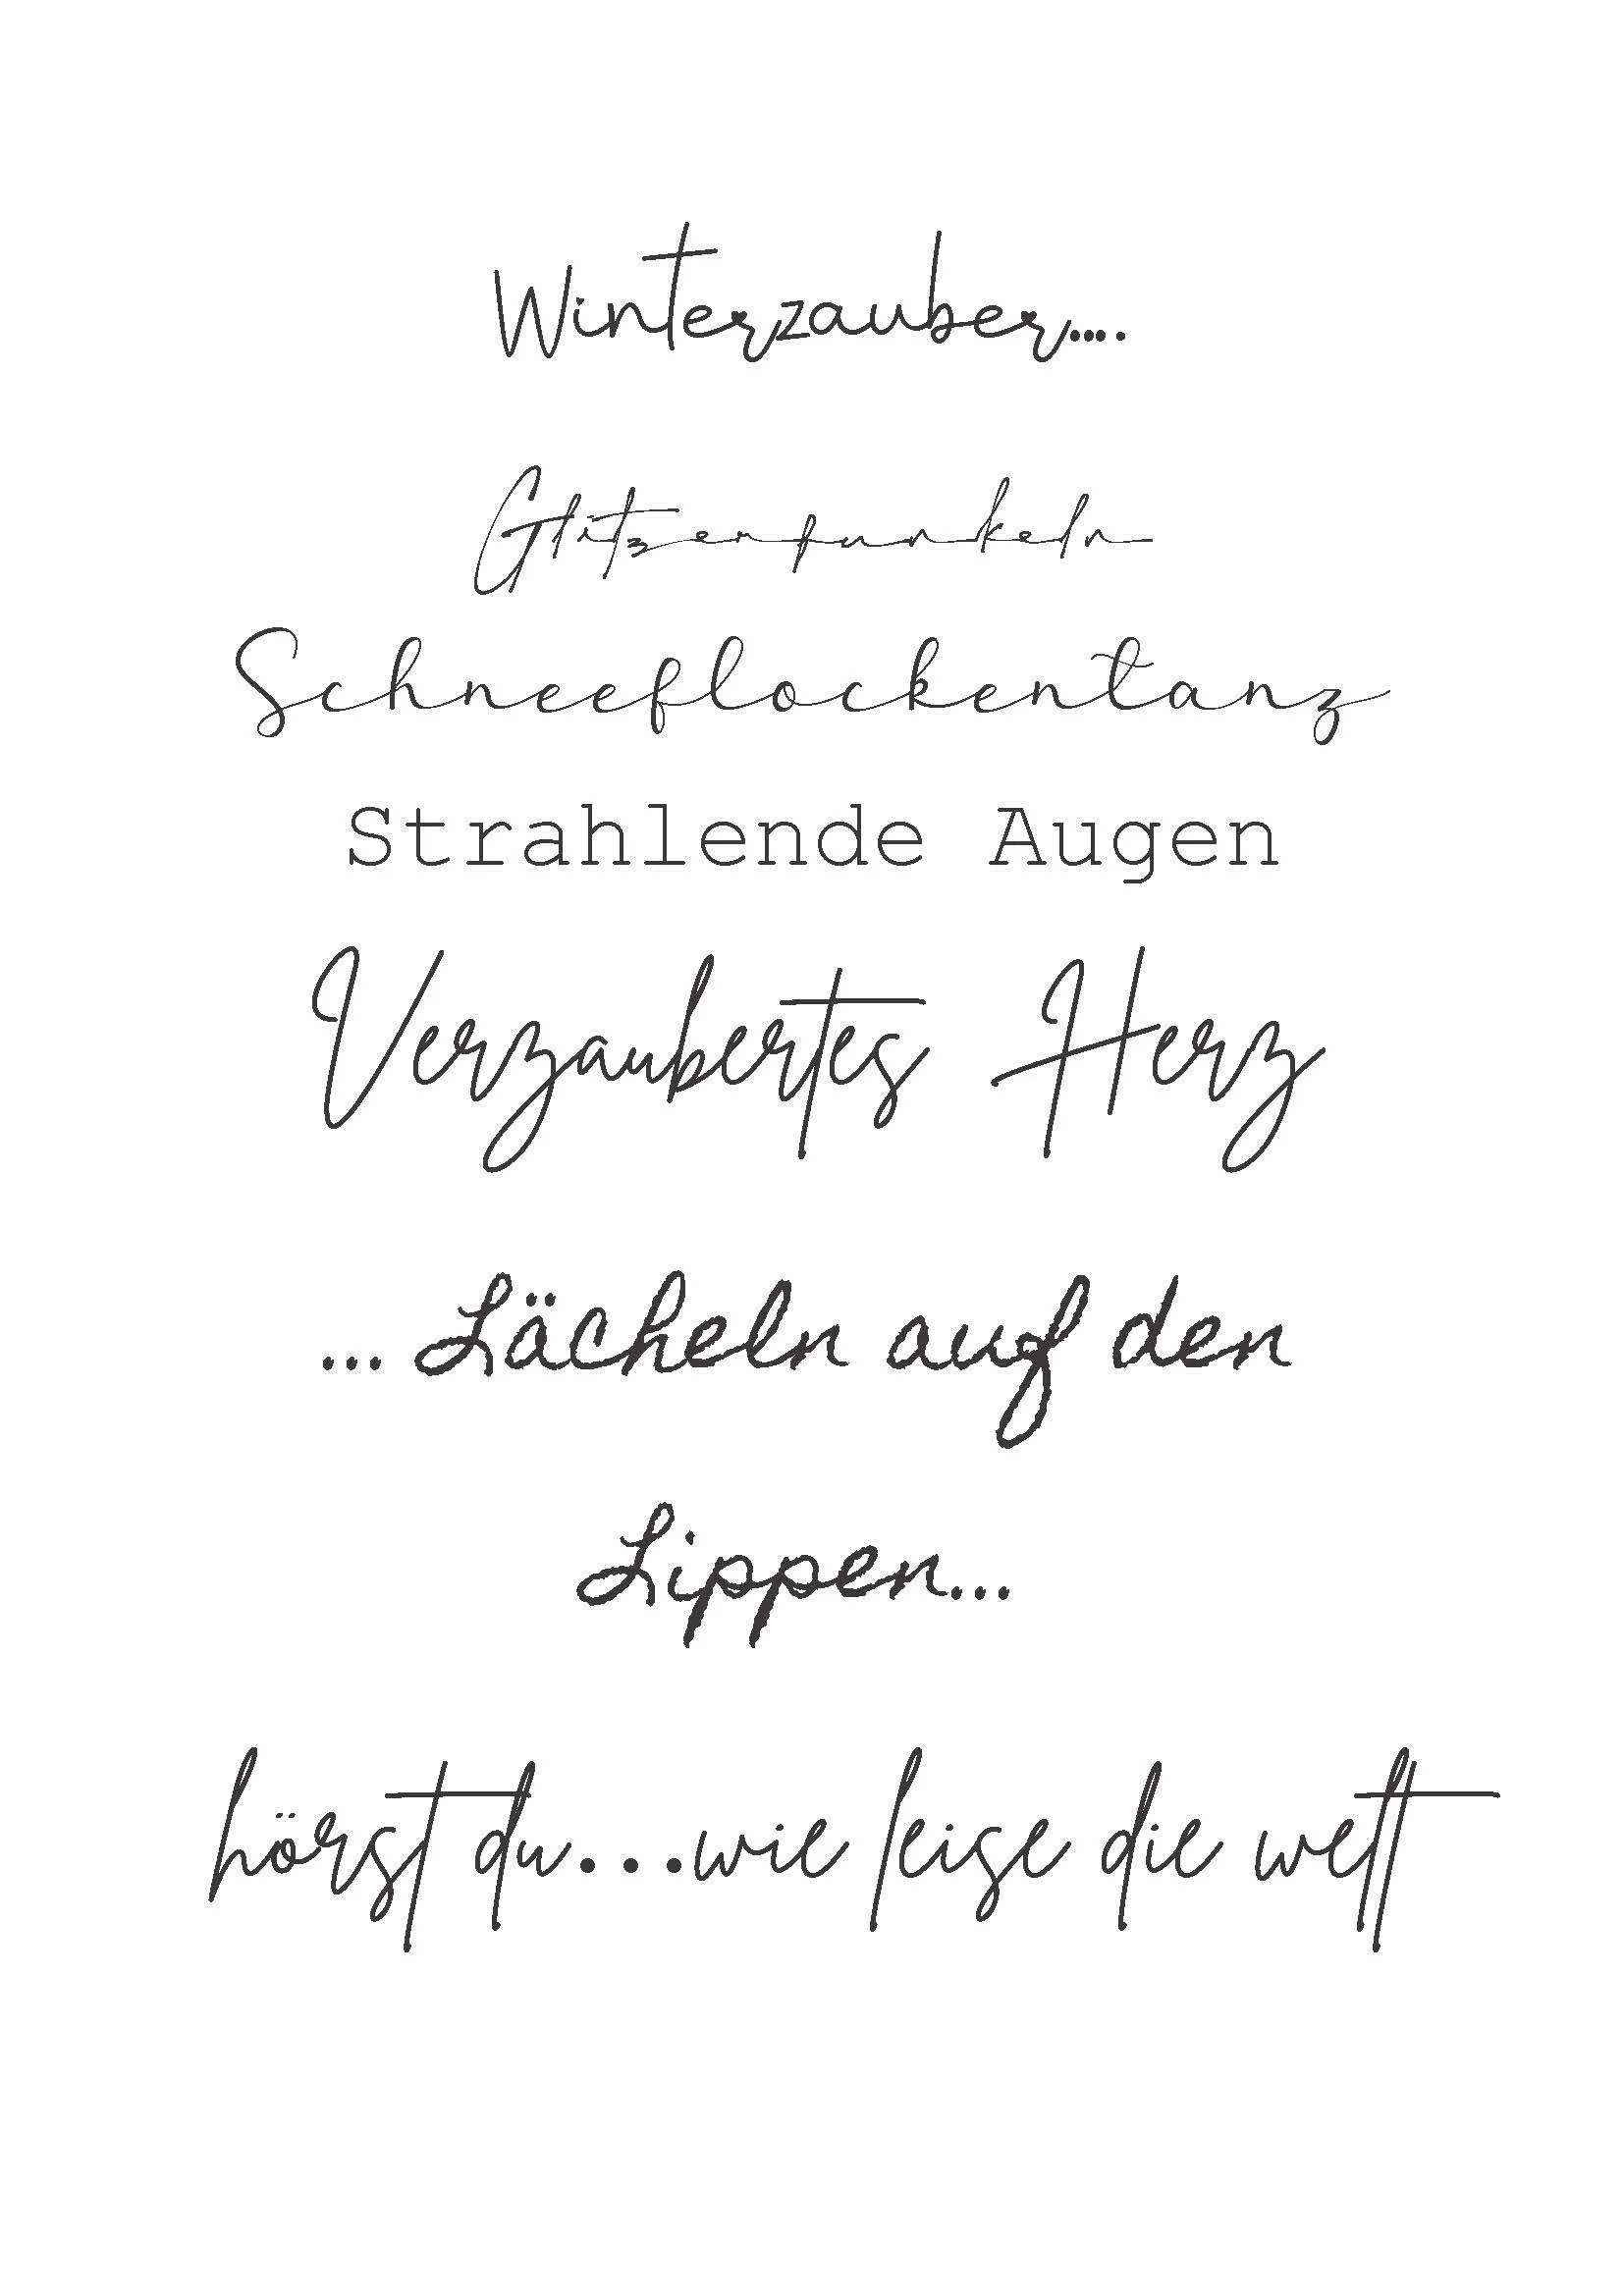 Winterzauber....
Glitzerfunkeln
Schneeflockentanz
Strahlende Augen
Verzaubertes Herz
... Lächeln auf den
Lippen...
hörst du...wie leise die welt